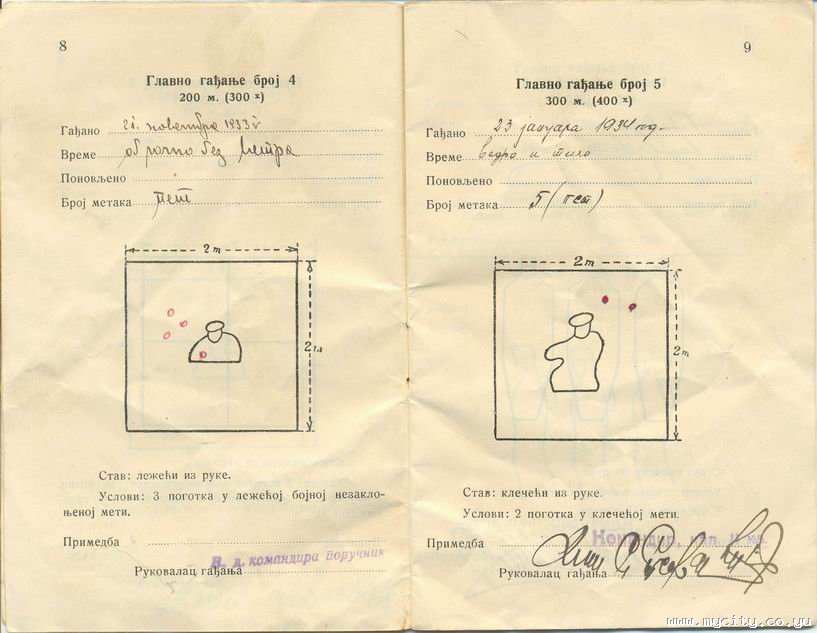 8
Главно гађање број 4
200 м. (300 ×)
Гађано 21. новембра 1933 г
Време облачно без ветра
Поновљено
Број метака пет
2 m
2 m
Став: лежећи из руке.
Услови: 3 поготка у лежећој бојној незакло-
њеној мети.
Примедба
В. д. командира поручник
Руковалац гађања
9
Главно гађање број 5
300 м. (400 ×)
Гађано 23 јануара 1934 год.
Време ведро и тихо
Поновљено
Број метака 5 (пет)
2 m
2 m
Став: клечећи из руке.
Услови: 2 поготка у клечећој мети.
Примедба
Командир,
Руковалац гађања
www.mycity.co.yu